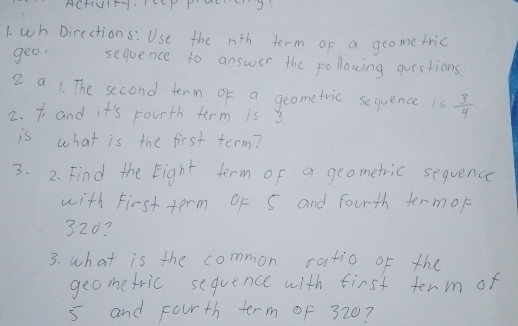 Activity: Keep practicing!
1. wh Directions: Use the nth term of a geometric
geo. sequence to answer the following questions
2 a 1. The second term of a geometric sequence is 3/4
2. and it's fourth term is 3.
is what is the first term?
3. 2. Find the Eight term of a geometric sequence
with First term of 5 and fourth term of
320?
3. what is the common ratio of the
geometric sequence with first term of
5 and fourth term of 320?